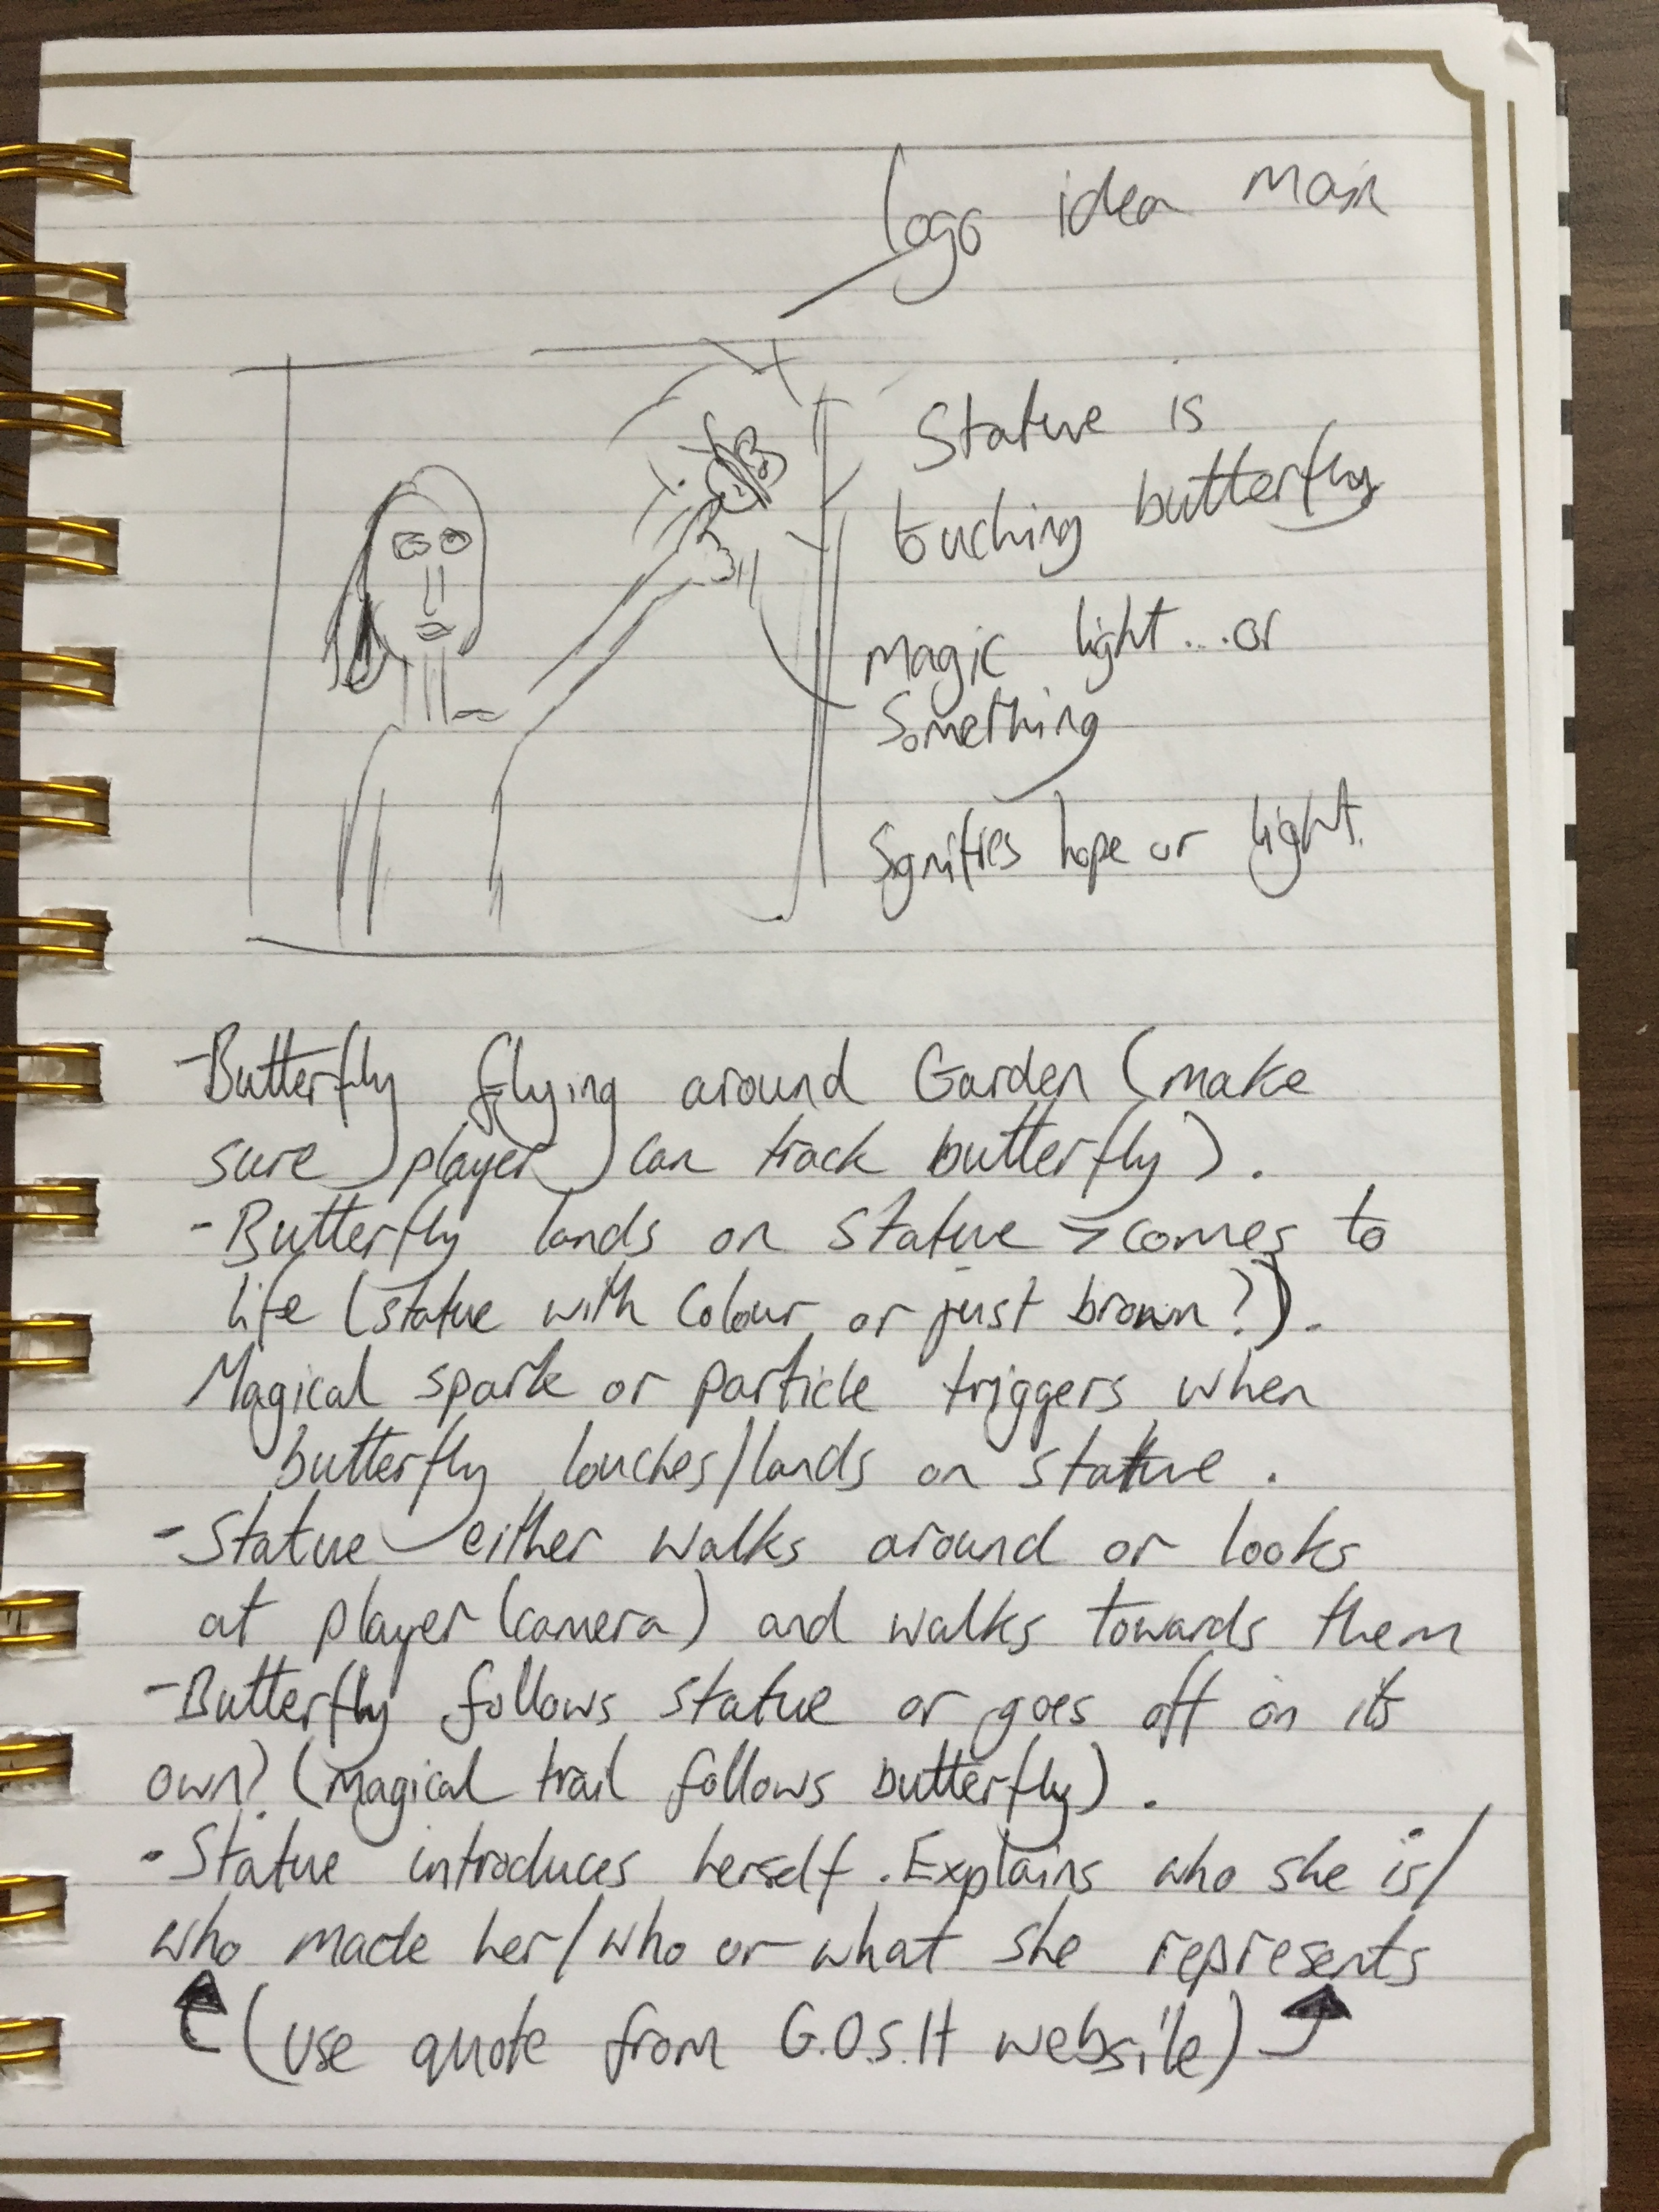 logo idea main
Statue is
tuching butterfly
magic light...or
something
Signifies hope or light.
-Butterfly flying around Garden (make
sure player can track butterfly).
-Butterfly lands on statue > comes to
life (statue with colour or just brown?).
Magical spark or particle triggers when
butterfly touches/lands on statue.
-Statue either walks around or looks
at player (camera) and walks towards them
-Butterfly follows statue or goes off on its
own? (magical trail follows butterfly).
-Statue introduces herself. Explains who she is/
who made her/who or what she represents
(use quote from G.O.S.H website)